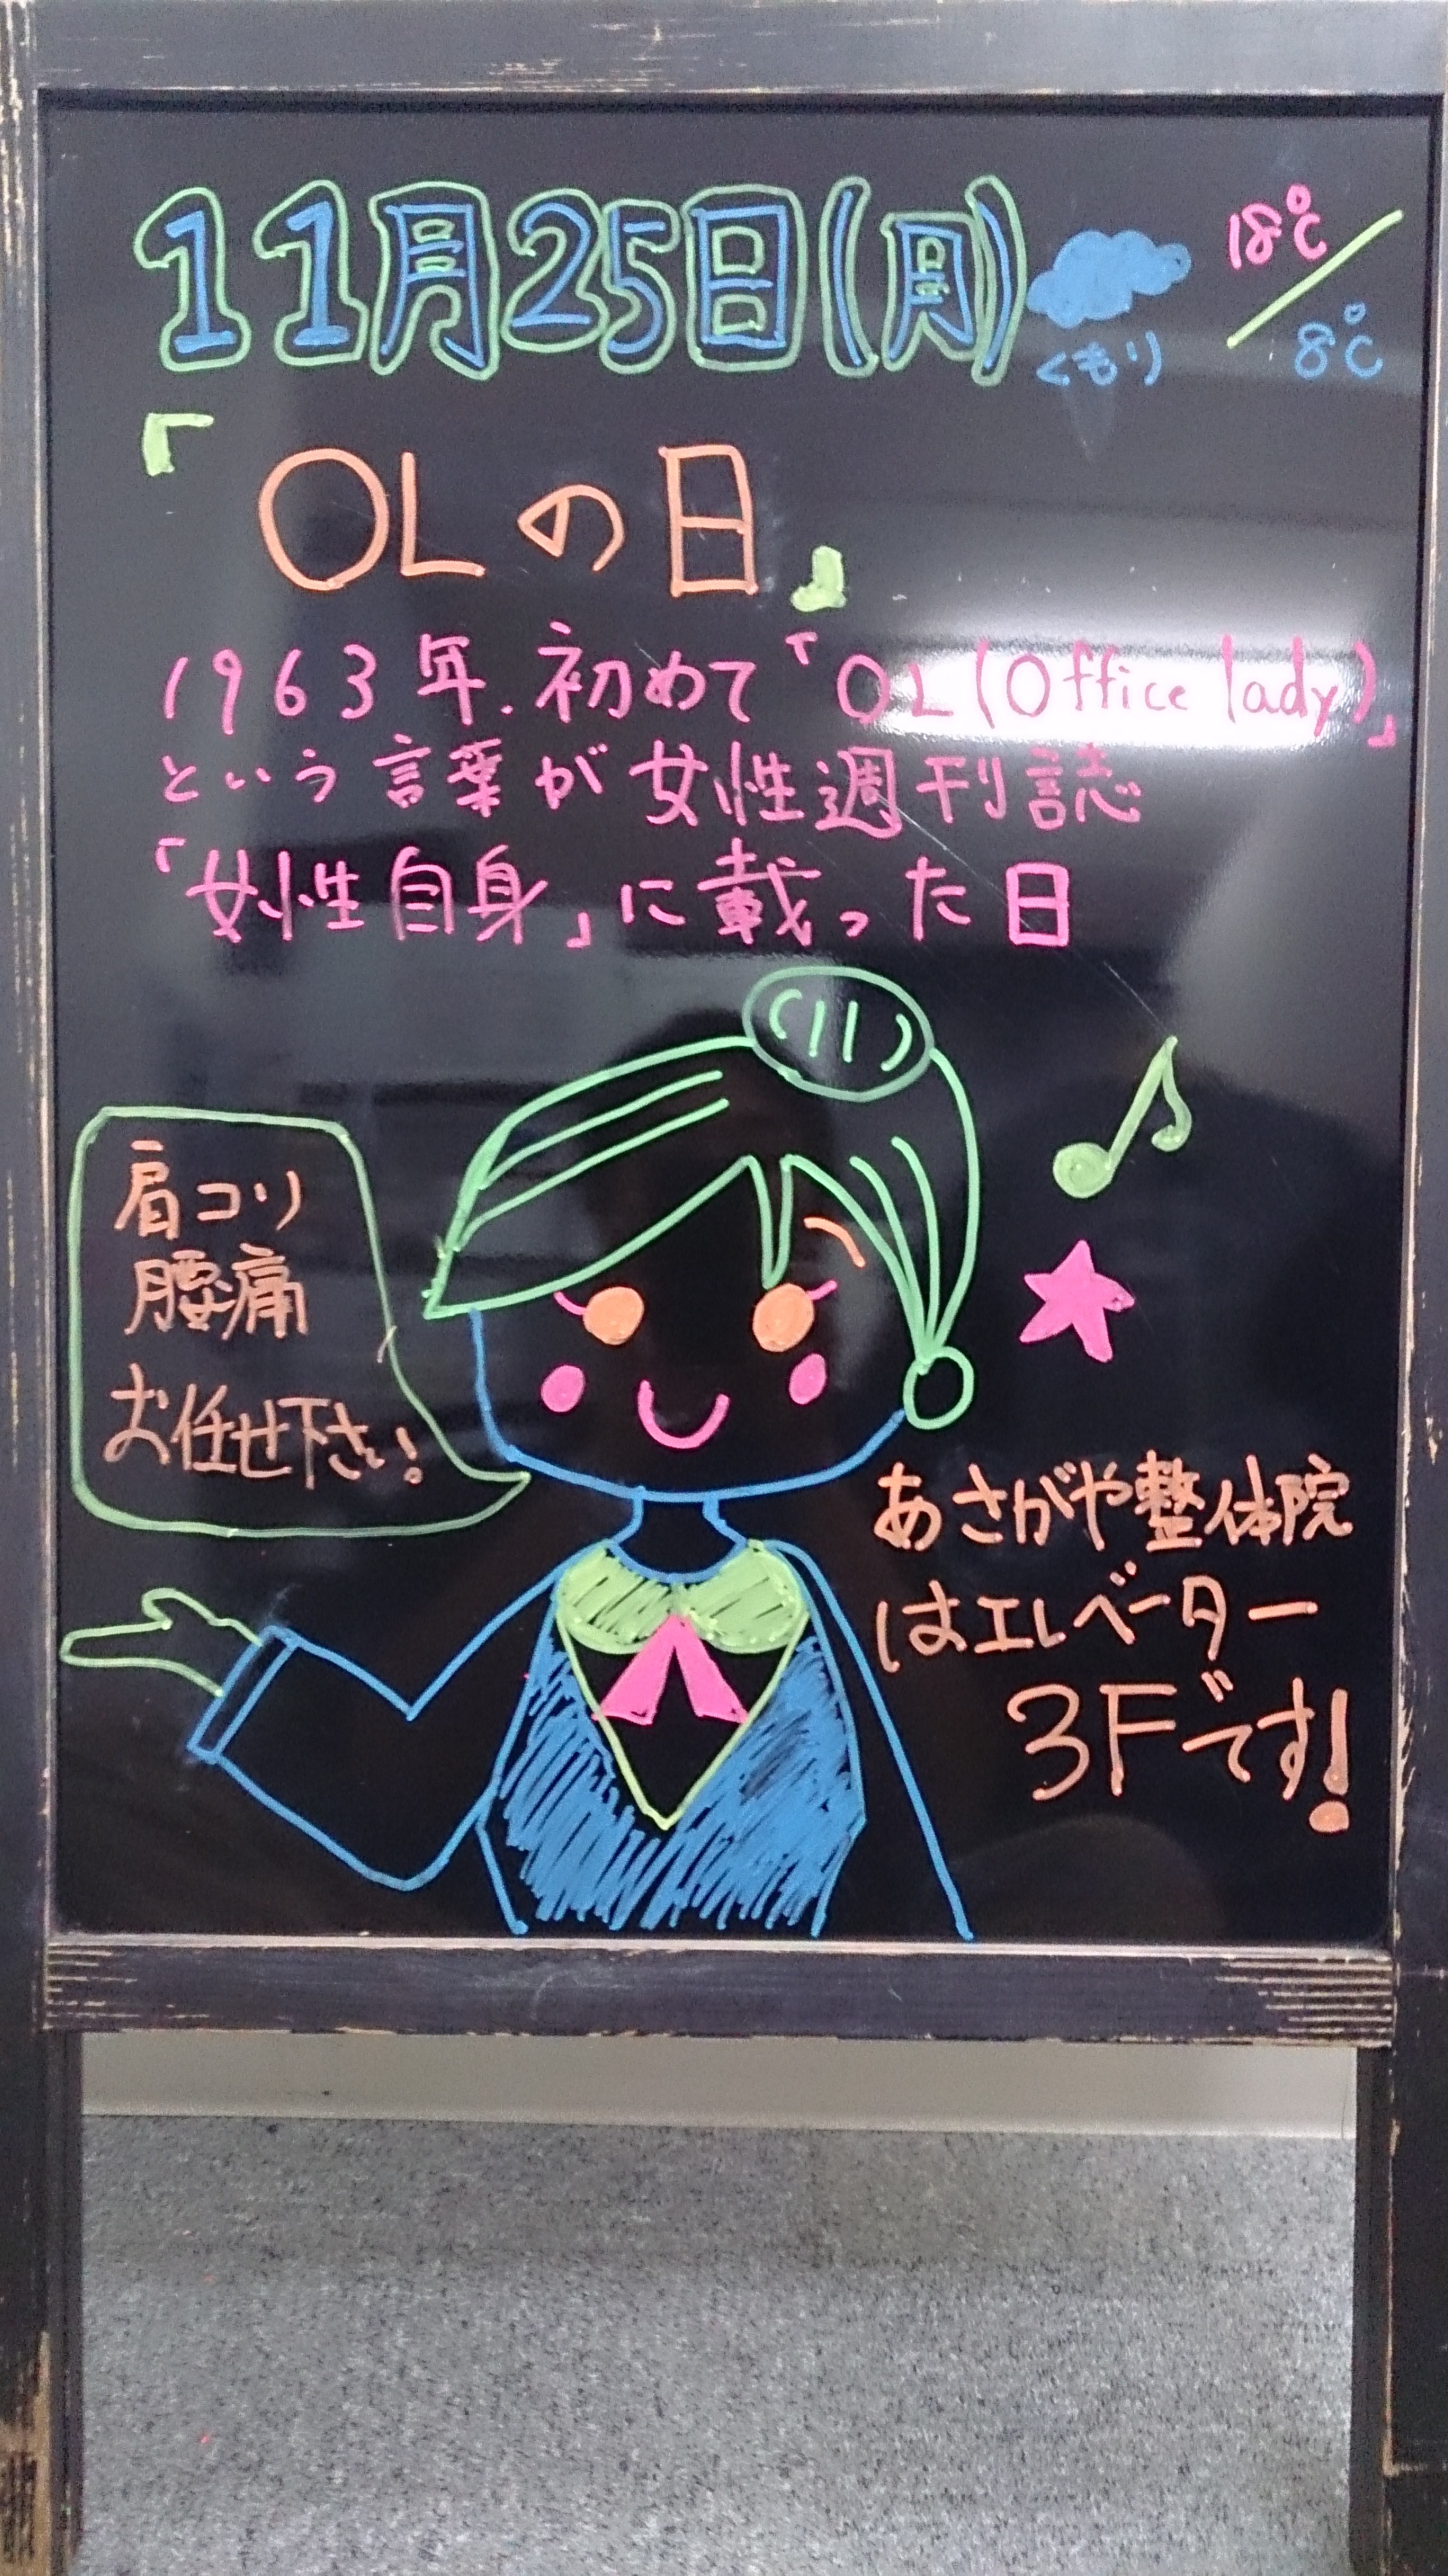 11月25日(月)
くもり
18℃/8℃
『OLの日』
1963年.初めて「OL(Office lady)」
という言葉が女性週刊誌
「女性自身」に載った日
肩コリ
腰痛
お任せ下さい!
あさがや整体院
はエレベーター
3Fです!